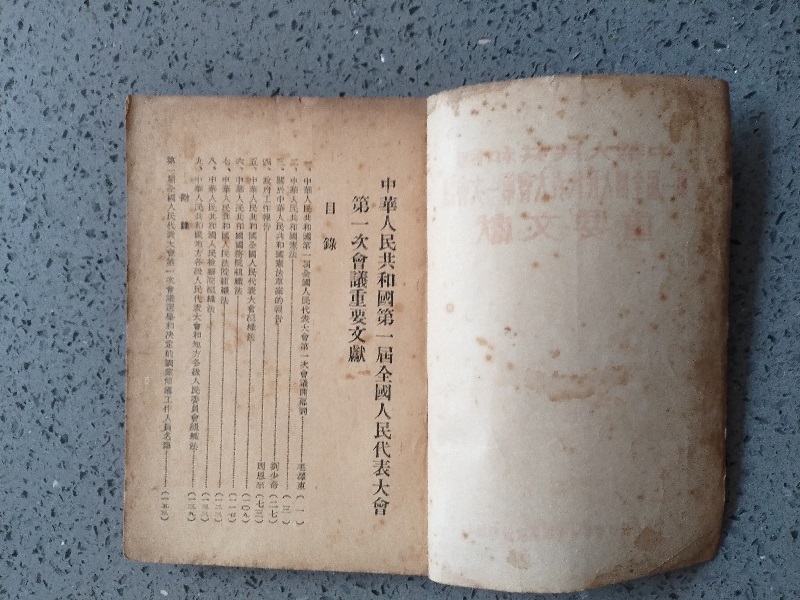 中華人民共和國第一屆全國人民代表大會
第一次會議重要文獻
目錄
一、中華人民共和國第一屆全國人民代表大會第一次會議開幕詞……毛澤東（一）
二、中華人民共和國憲法……（三）
三、關於中華人民共和國憲法草案的報告……劉少奇（二七）
四、政府工作報告……周恩來（七三）
五、中華人民共和國全國人民代表大會組織法……（一〇九）
六、中華人民共和國國務院組織法……（一一七）
七、中華人民共和國人民法院組織法……
八、中華人民共和國人民檢察院組織法……
九、中華人民共和國地方各級人民代表大會和地方各級人民委員會組織法……
附錄
第一屆全國人民代表大會第一次會議選舉和決定的國家領導工作人員名單……